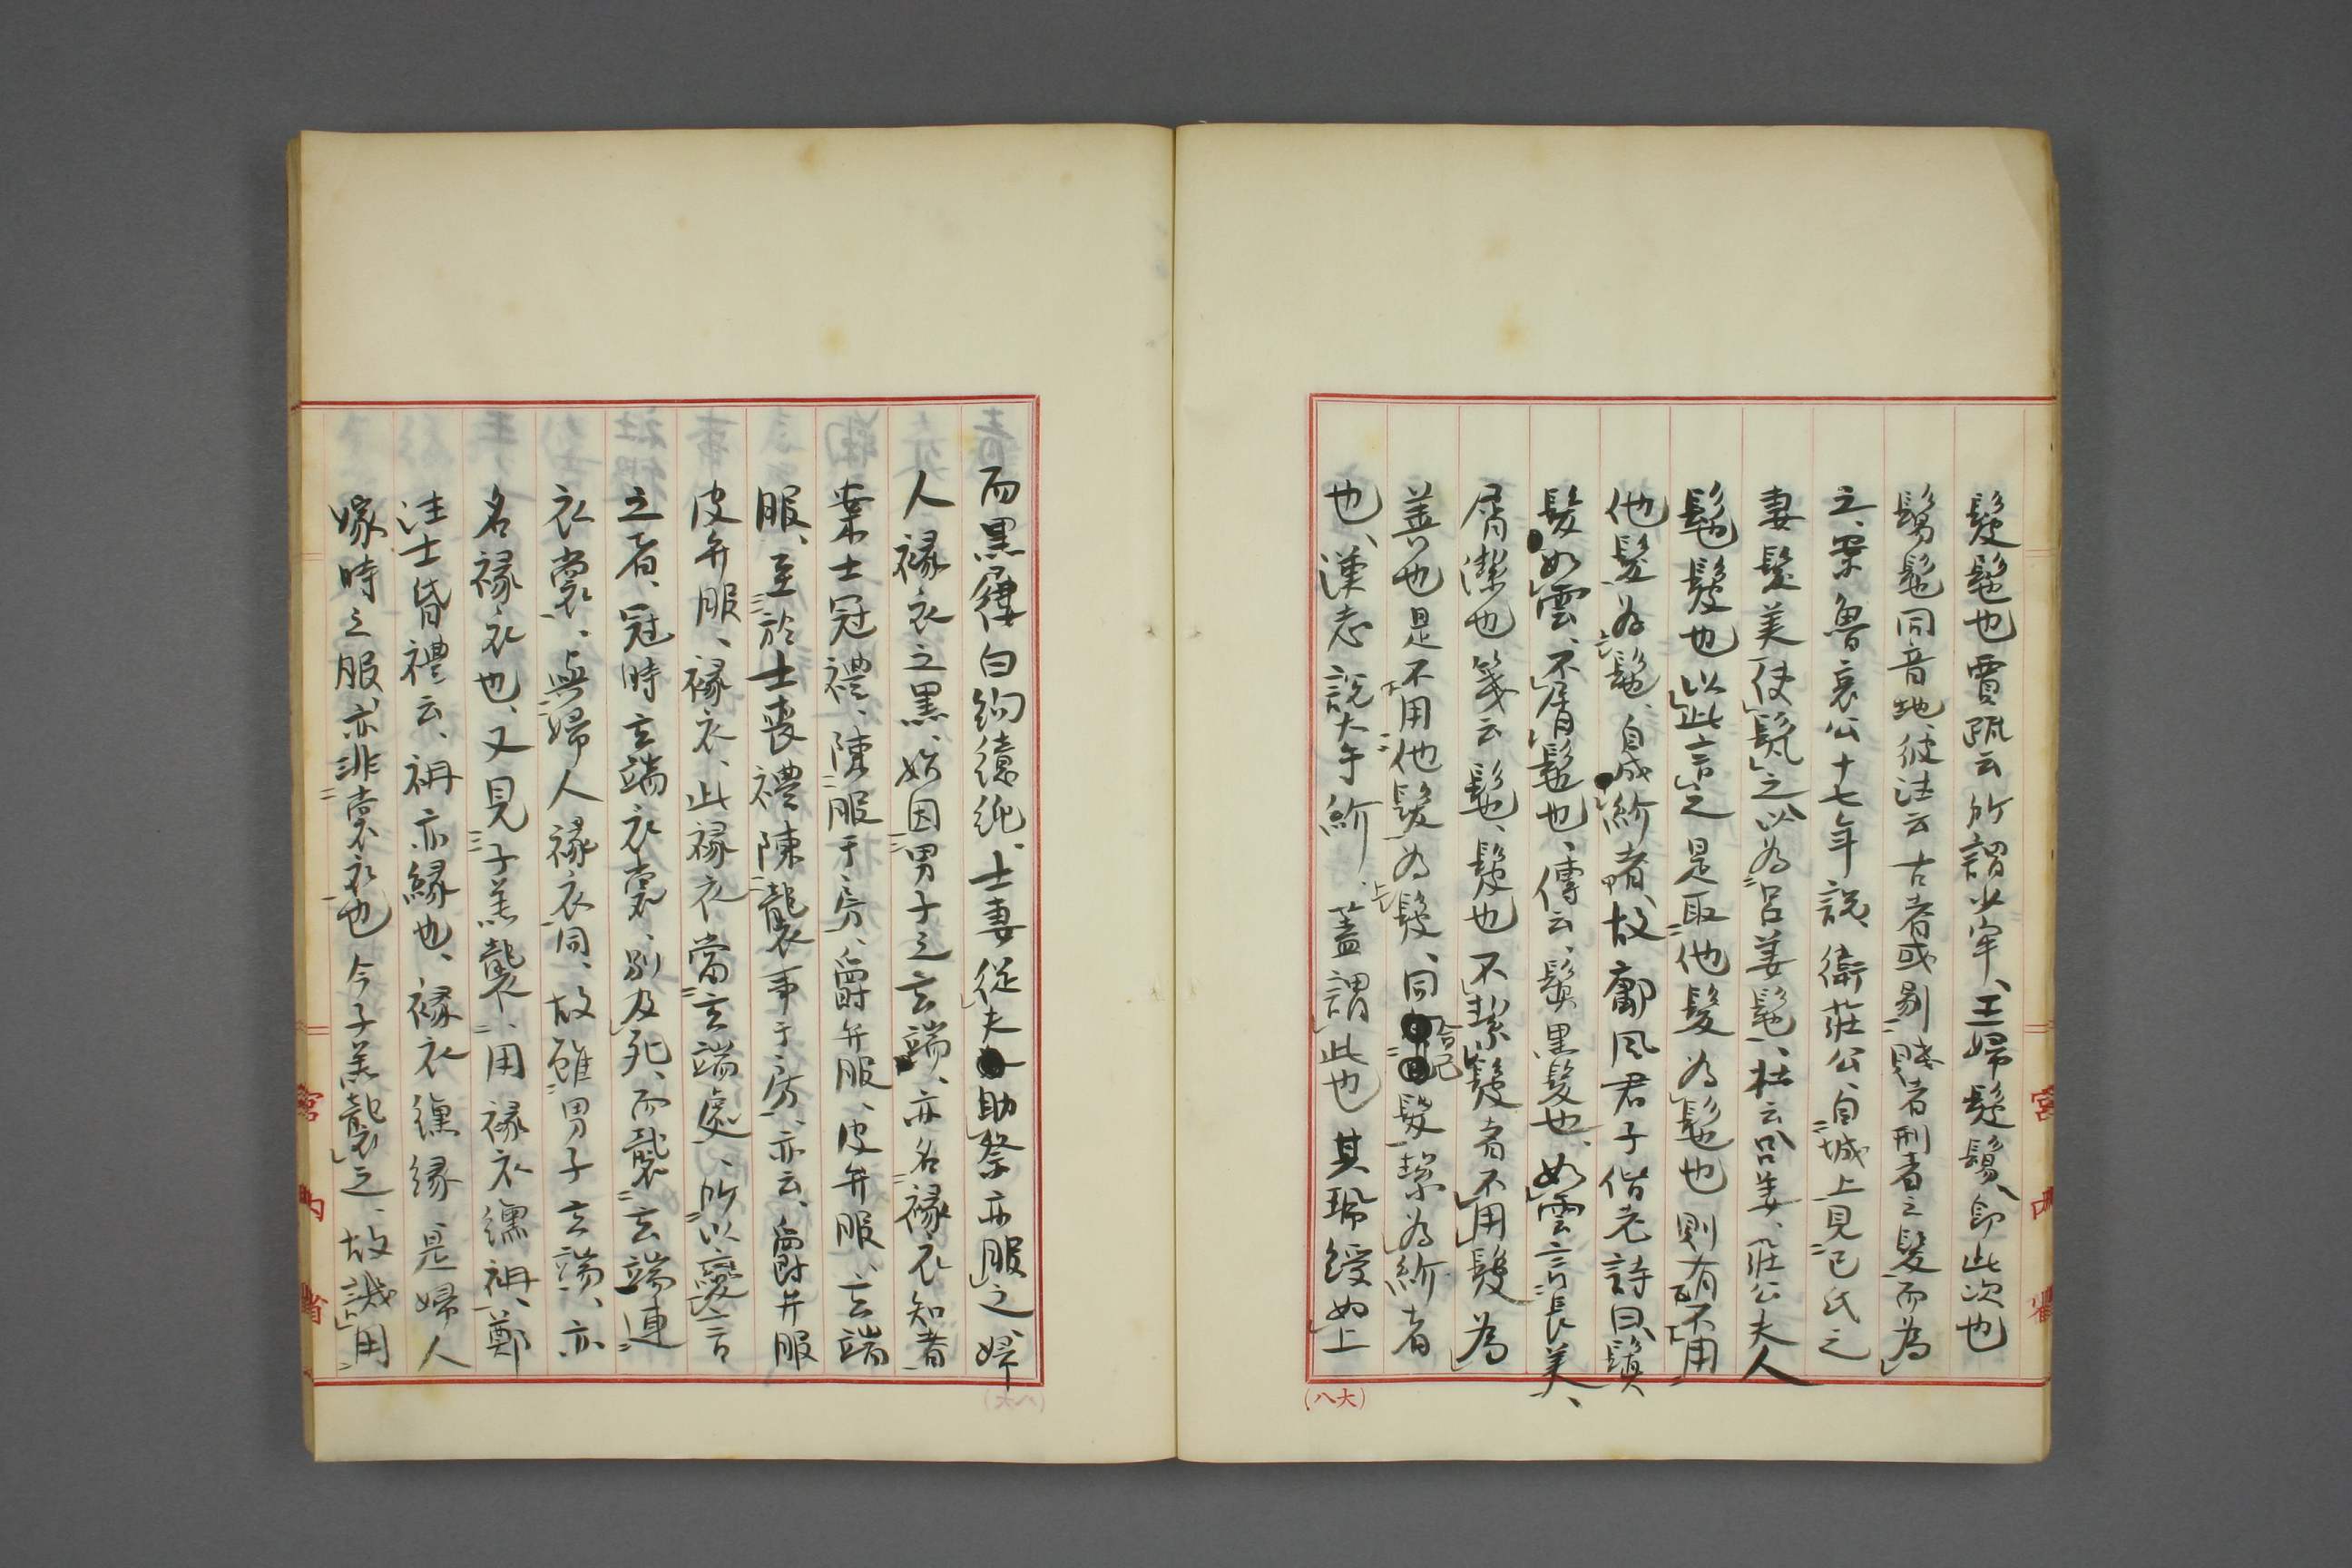 髲髢也賈疏云所謂少牢、主婦髲鬄、即此次也
鬄髢同音地、彼注云古者或剔賤者刑者之髮、而為
之、案魯哀公十七年說、衛莊公、自城上見己氏之
妻髮美、使髡之、以為呂姜髢、杜云呂姜、莊公夫人
髢髲也、以此言之、是取他髮為髢也、則有不用
他髮為髢、自成紒者、故鄘風君子偕老詩曰、鬒
髮如雲、不屑髢也、傳云、鬒黑髮也、如雲言長美、
屑潔也、箋云髢、髲也、不絜髲者、不用髲為
善也、是不用他髮為髲、同合己髮、絜為紒者
也、漢志說大手紒、蓋謂此也 其珮綬如上
而黑屨白絇繶純、士妻從夫助祭亦服之、婦
人褖衣之黑、始因男子之玄端、亦名褖衣、知者
案士冠禮、陳服于房、爵弁服、皮弁服、玄端
服、至於士喪禮、陳襲事于房、亦云、爵弁服
皮弁服、褖衣、此褖衣、當玄端處、所以變言
之者、冠時玄端衣裳、別及死、而襲玄端連
衣裳、與婦人褖衣同、故雖男子玄端、亦
名褖衣也、又見子羔襲、用褖衣纁袡、鄭
注士昏禮云、袡亦緣也、褖衣纁緣、是婦人
嫁時之服、亦非常衣也 今子羔襲之、故譏用
宮內省
宮內省
(大八)